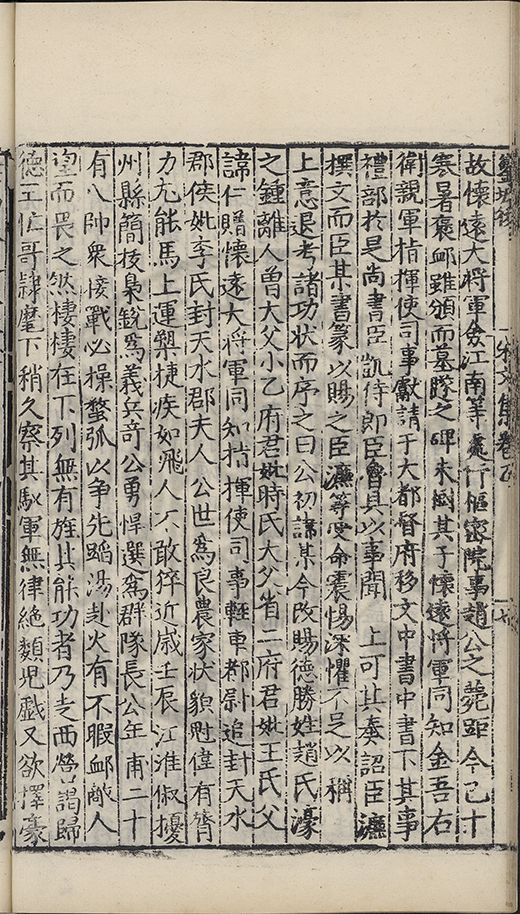 故懷遠大將軍僉江南等處行樞密院事趙公之薨距今已十
寒暑褒䘏雖頒而墓隧之碑未樹其子懷遠將軍同知金吾右
衛親軍指揮使司事獻請于大都督府移文中書中書下其事
禮部於是尚書臣凱侍郎臣魯具以事聞　上可其奏詔臣濂
撰文而臣某書篆以賜之臣濂等受命震惕深懼不足以稱
上意退考諸功狀而序之曰公初諱某今改賜德勝姓趙氏濠
之鍾離人曾大父小乙府君妣時氏大父省二府君妣王氏父
諱仁贈懷遠大將軍同知指揮使司事輕車都尉追封天水
郡侯妣李氏封天水郡夫人公世為良農家狀貌魁偉有膂
力尤能馬上運槊捷疾如飛人不敢猝近歲壬辰江淮俶擾
州縣簡技梟銳為義兵奇公勇悍選為群隊長公年甫二十
有八帥衆接戰必操蝥弧以争先蹈湯赴火有不暇䘏敵人
望而畏之然棲棲在下列無有旌其能功者乃走西營謁歸
德王忙哥隷麾下稍久察其馭軍無律絶類児戲又欲擇豪